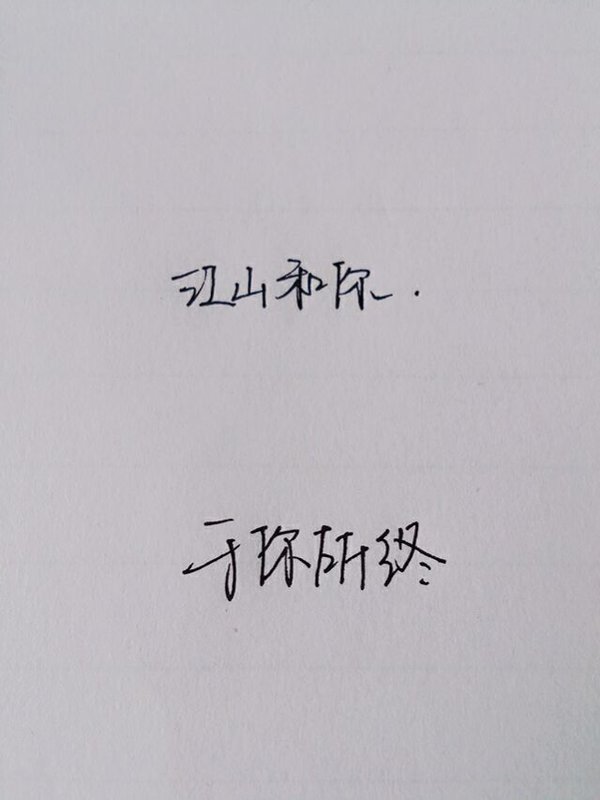 江山和你.
于你所终